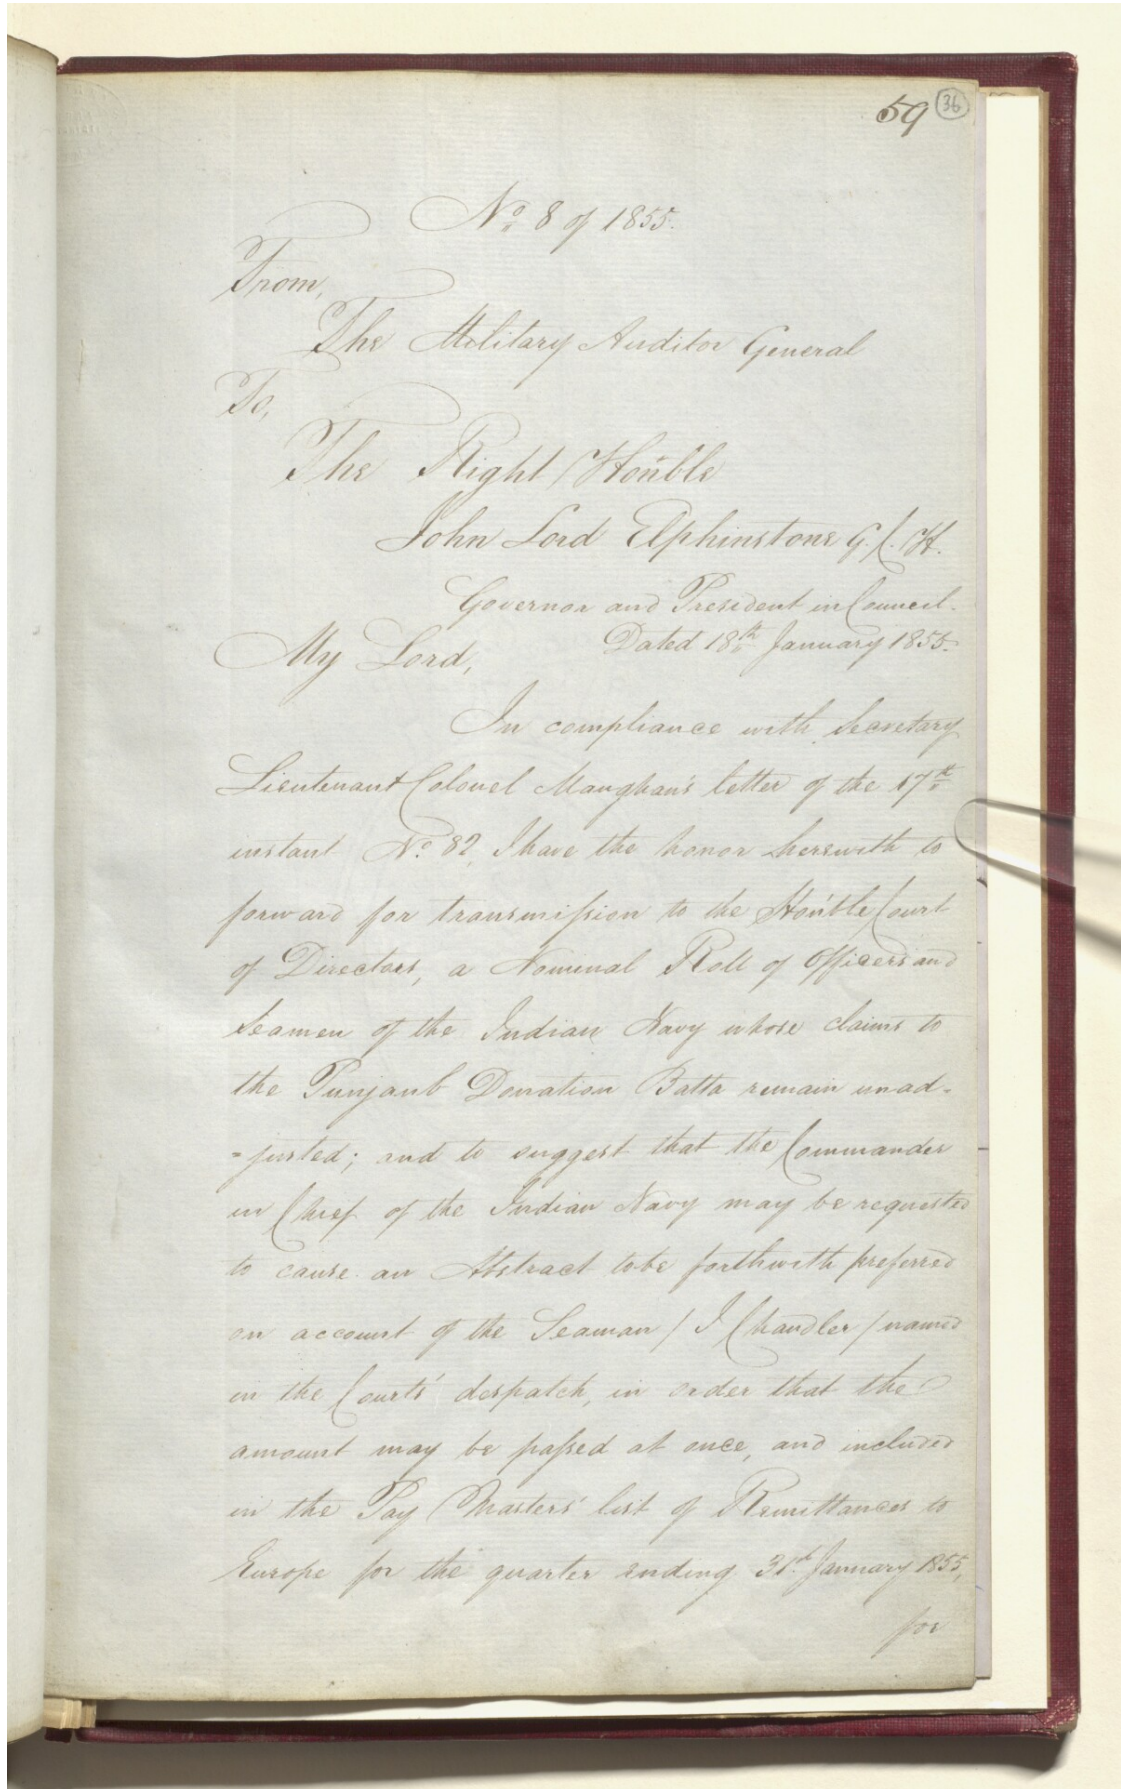 59 36
No. 8 of 1855.
From,
The Military Auditor General
To,
The Right Hon'ble
John Lord Elphinstone G.C.H.
Governor and President in Council.
Dated 18th January 1855.
My Lord,
In compliance with Secretary
Lieutenant Colonel Maughan's letter of the 17th
instant No. 82, I have the honor herewith to
forward for transmission to the Hon'ble Court
of Directors, a Nominal Roll of Officers and
Seamen of the Indian Navy whose claims to
the Punjaub Donation Batta remain unad-
=justed; and to suggest that the Commander
in Chief of the Indian Navy may be requested
to cause an Abstract to be forthwith preferred
on account of the Seaman / J Chandler / named
in the Courts' despatch, in order that the
amount may be passed at once, and included
in the Pay Masters' list of Remittances to
Europe for the quarter ending 31st January 1855,
for